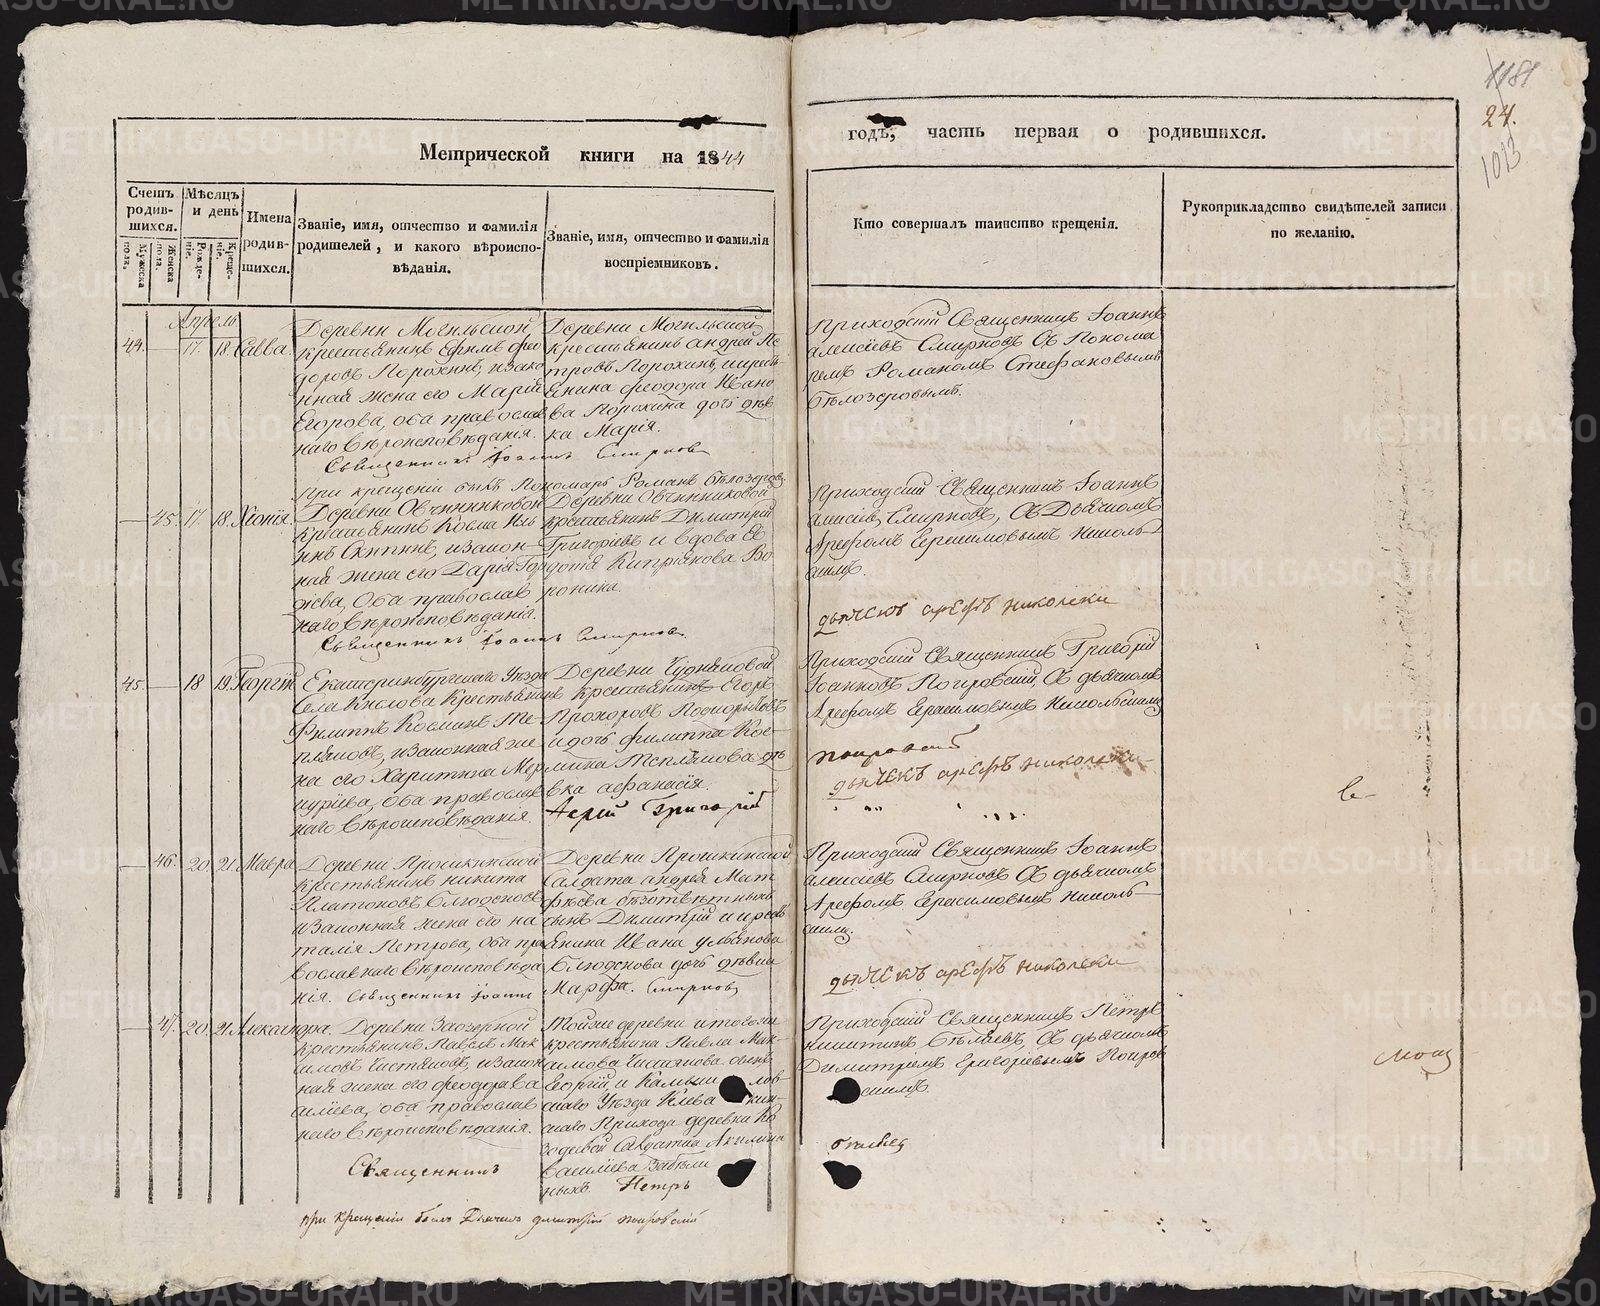 1181
24.
1013
Метрической книги на 1844
годъ, часть первая о родившихся.
Счетъ родившихся.
Мужеска пола.
Женска пола.
Мѣсяцъ и день
Рожденіе.
Крещеніе.
Имена родившихся.
Званіе, имя, отчество и фамилія родителей, и какого вѣроисповѣданія.
Званіе, имя, отчество и фамилія воспріемниковъ.
Кто совершалъ таинство крещенія.
Рукоприкладство свидѣтелей записи по желанію.
Апрѣль
44. — 17. 18 Савва.
Деревни Могильской
крестьянинъ Ефимъ Фео
доровъ Порохинъ, и зако
нная жена его Марія
Егорова, оба православ
наго вѣроисповѣданія.
Деревни Могильской
крестьянинъ Андрей Пе
тровъ Порохинъ, и кресть
янина Феодора Ивано
ва Порохина дочь дѣв
ка Марія.
Священникъ Іоаннъ Смирновъ
При крещеніи былъ Пономарь Романъ Бѣлозеровъ
Приходскій Священникъ Іоаннъ
Алексіевъ Смирновъ Съ Понома
ремъ Романомъ Стефановымъ
Бѣлозеровымъ.
— 45. 17. 18. Хіонія.
Деревни Овчинниковой
крестьянинъ Козма Иль
инъ Скипинъ, и закон-
ная жена его Дарія Гор
дѣева, Оба православ
наго вѣроисповѣданія.
Деревни Овчинниковой
крестьянинъ Димитрій
Григоріевъ и вдова Ев
докія Кипріянова Во
ронина.
Священникъ Іоаннъ Смирновъ
Приходскій Священникъ Іоаннъ
Алексіевъ Смирновъ, Съ Дьячкомъ
Арефомъ Герасимовымъ Николь-
скимъ.
дьячекъ арефъ николски
45. — 18 19. Георгій
Екатеринбургскаго Уѣзда
Села Кислова Крестьянинъ
Филиппъ Косминъ Те-
пляковъ, и законная же
на его Харитина Мер
курiева, Оба православ
наго вѣроисповѣданія.
Деревни Чудняковой
крестьянинъ Егоръ
Прохоровъ
и дочь Филиппа Кос-
мина Теплякова дѣ
вка Афанасія.
Іерей Григорій
Приходскій Священникъ Григорій
Іоанновъ Покровскій, Съ дьячкомъ
Арефомъ Герасимовымъ Никольскимъ
покровскій
дьячекъ арефъ николски
— 46. 20. 21. Мавра.
Деревни Прошкинской
крестьянинъ Никита
Платоновъ Блюденовъ
и законная жена его На
талія Петрова, Оба пра
вославнаго вѣроисповѣда
нія.
Деревни Прошкинской
Солдата Андрея Мат
фѣева
сынъ Димитрій и кресть
янина Ивана Ульянова
Блюденова дочь дѣвка
Марфа.
Священникъ Іоаннъ Смирновъ
Приходскій Священникъ Іоаннъ
Алексіевъ Смирновъ Съ дьячкомъ
Арефомъ Герасимовымъ Николь-
скимъ.
дьячекъ арефъ николски
— 47. 20. 21. Александра.
Деревни Заозерной
крестьянинъ Павелъ Мак
симовъ Чистяковъ, и закон
ная жена его Феодора Ва
силіева, оба православ
наго вѣроисповѣданія.
Тойже деревни и тогоже
крестьянина Павла Мак
симова Чистякова сынъ
Георгій, и Камышлов-
скаго Уѣзда
скаго Прихода деревни Ко
Акилина
Василіева Забѣли
ныхъ.
Священникъ Петръ
Приходскій Священникъ Петръ
Никитинъ Бѣляевъ, Съ дьячкомъ
Димитріемъ Григоріевымъ Покров
скимъ.
бѣляевъ
при крещеніи былъ Дьячекъ димитрій покровскій